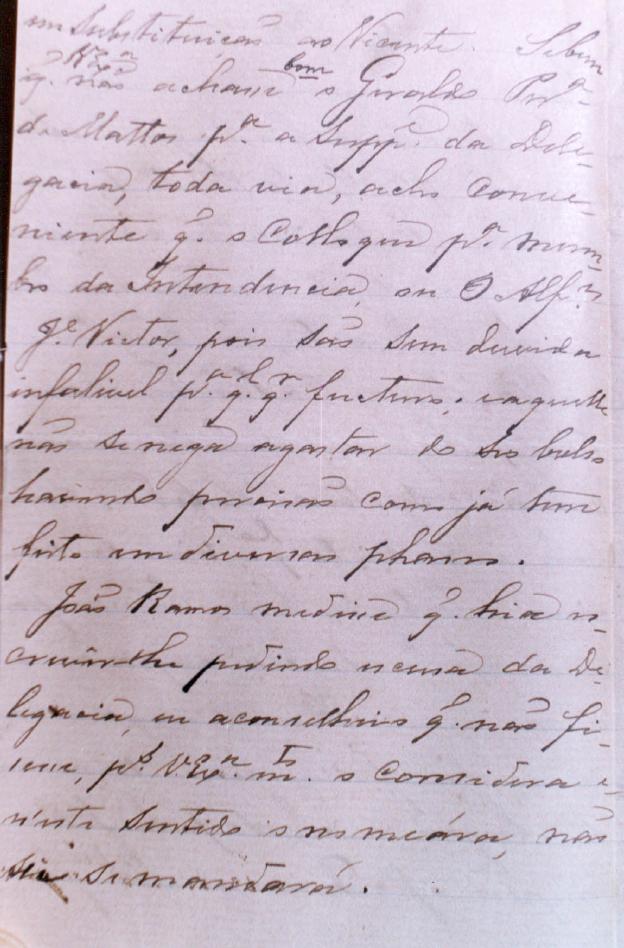 em substituição ao Vicente. Sebem
q. V Exª não achasse bom o Geraldo Prª
de Mattos pª a Suppᵉ da Dele-
gacia, toda via, acho conve-
niente q. o Colloque pª mem-
bro da Intendencia, ou O Alfˢ
Jᵉ Victor, pois são sem duvida
infalivel pª q.q.ʳ fucturo; e aquelle
não se nega agastar do seo bolso
havendo percisão como já tem
feito em diversas phases.
João Ramos medisse q. hia es-
crever-lhe pedindo escusa da De-
legacia, eu aconselheio q. não fi-
sesse, pˢ V. Exª mᵗᵒ o Considera e
n'este sentido o nomeára, não
sei se mandará.